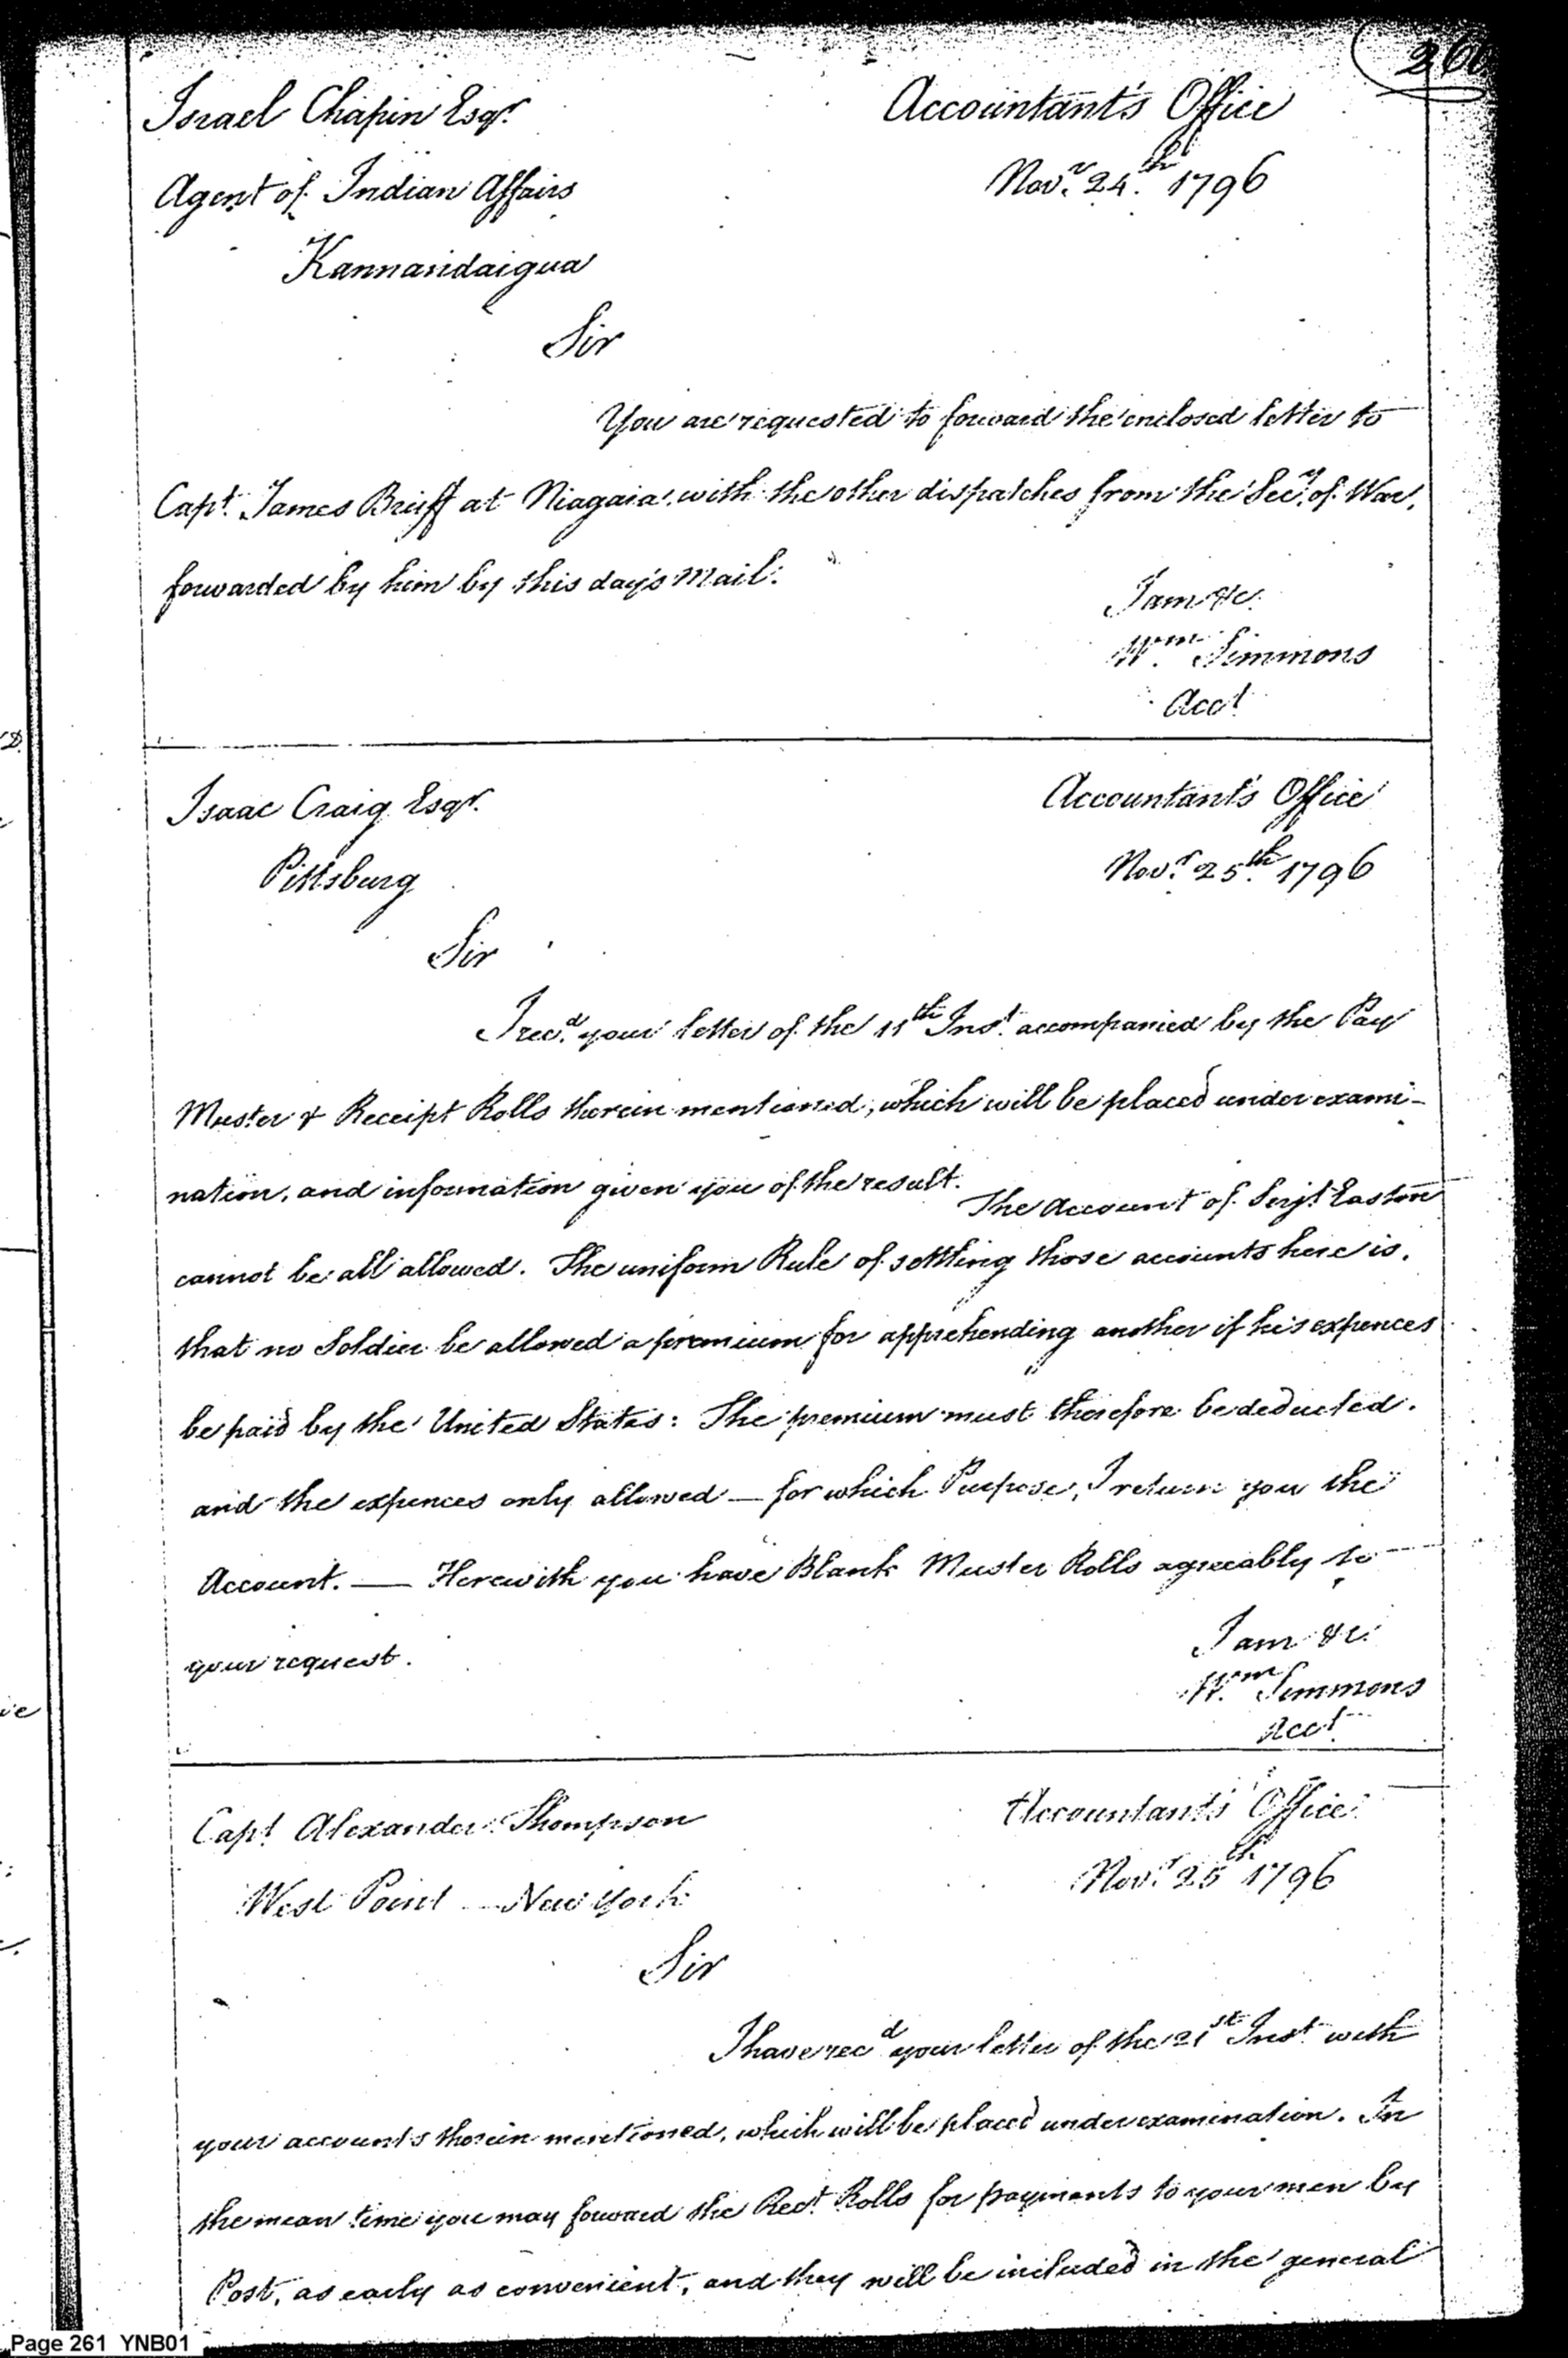 260
Israel Chapin Esqr. Accountant's Office
Agent of Indian Affairs Novr. 24th. 1796
Kannandaigua
Sir
You are requested to forward the enclosed letter to
Capt. James Bruff at Niagara with the other dispatches from the Secy. of War,
forwarded by him by this day's mail.
I am &c.
Wm. Simmons
Acct.
Isaac Craig Esqr. Accountant's Office
Pittsburg Novr. 25th. 1796
Sir
I recd. your letter of the 11th Inst. accompanied by the Pay
Muster & Receipt Rolls therein mentioned, which will be placed under exami-
nation, and information given you of the result. The Account of Serjt. Easton
cannot be all allowed. The uniform Rule of settling those accounts here is,
that no Soldier be allowed a premium for apprehending another if his expences
be paid by the United States: The premium must therefore be deducted.
and the expences only allowed — for which Purpose, I return you the
Account. — Herewith you have Blank Muster Rolls agreeably to
your request.
I am &c.
Wm. Simmons
Acct.
Capt. Alexander Thompson Accountant's Office
West Point — New York Novr. 25th 1796
Sir
I have recd your letter of the 21st Inst. with
your accounts therein mentioned, which will be placed under examination. In
the mean time you may forward the Rect. Rolls for payments to your men by
Post, as early as convenient, and they will be included in the general
Page 261 YNB01